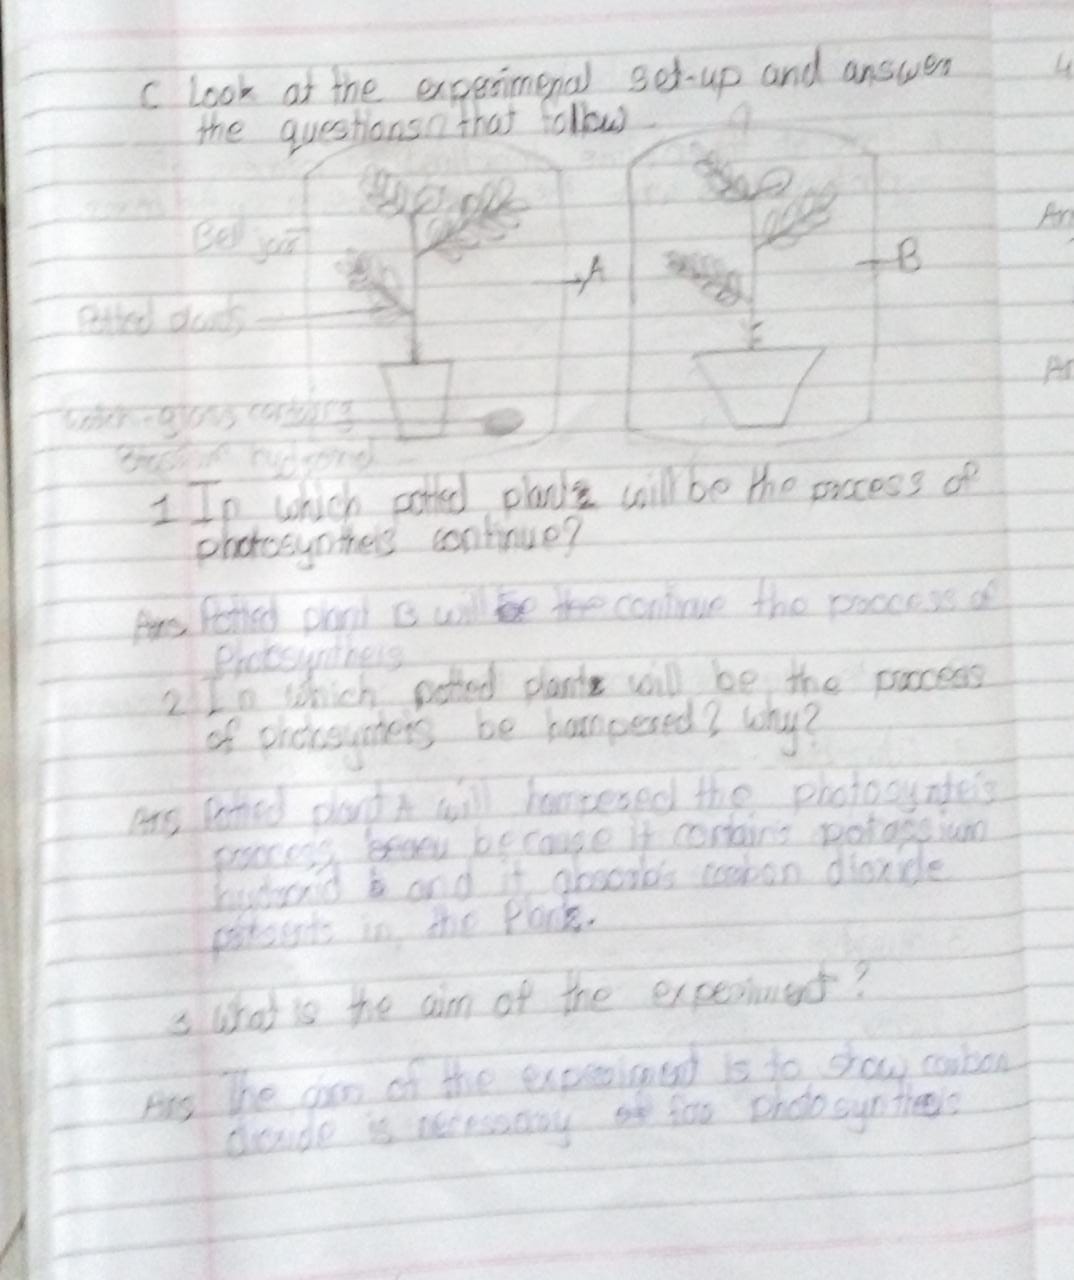 C Look at the experimenal set-up and answer
the questions that follow
Bell jar
A
B
Potted plants
watch-glass containg
hydroxid
1 In which potted plants will be the process of
photosyntheis continue?
Ans Potted plant B will be the continue the proccess of
Photosyntheis
2 In which potted plants will be the process
of photosynteis be hampered? why?
Ans Potted plant A will hampered the photosynteis
process because it contains potassium
hydroxid and it absorbs carbon dioxide
presents in the Plant.
3 What is the aim of the experiment?
Ans The aim of the experiment is to show carbon
dioxide is necessary for photosyntheis
4
An
An